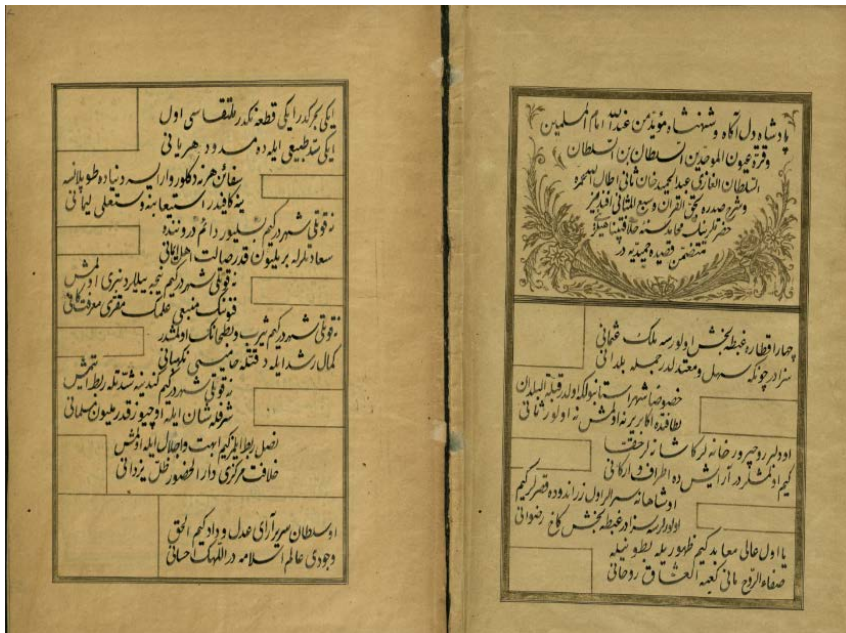 پادشاه دل آکاه و شهنشاه مؤید من عندالله امام المسلمین
وقرة عیون الموحدین السلطان بن السلطان
السلطان الغازی عبدالحمید خان ثانی اطال الله عمره
وشرح صدره بحق القرآن وسبع المثانی افندیمز
حضرتلرینک محامد سنیه خلافتپناهیلرینی
متضمن قصیده حمیدیه در
چهار اقطاره غبطه بخش اولورسه ملک عثمانی
سزادر چونکه سهل و معتدلدر جمله بلدانی
خصوصا شهر استانبولکه اولدر قبلة البلدان
لطافتده اکا بر یر نه اولمش نه اولور ثانی
اودلبر روحپرور خانه لر کاشانه لر حقا
کیم اولمشلر در آرایش ده اطراف و ارکانی
اوشاهانه سرالر اول زراندوده قصرلر کیم
اولورلرسه سزادر غبطه بخش کاخ رضوانی
یا اول عالی معابد کیم ظهوریله بطونیله
صفاء الروح مانی کعبة العشاق روحانی
ایکی بحرکدر ایکی قطعه نکدر ملتقاسی اول
ایکی سد طبیعی ایله ده مسدود هر یانی
سفائن هر نه دکلو وار ایسه دنیاده طوپلانسه
ینه کافیدر استیعابنه وسعتلی لیمانی
نه قوتلی شهر در کیم بسلیور دائم دروننده
سعادتلرله بر ملیون قدر صالت اهل ایمانی
نه قوتلی شهر در کیم نیجه ییللردنبری اولمش
فنونک منبعی علمک مقری معرفت کانی
نه قوتلی شهر در کیم یثرب و بطحانک اولمشدر
کمال رشد ایله دقتله حامیسی نکهبانی
نه قوتلی شهر در کیم کندینه شدتله ربط ایتمش
شرفله شان ایله اوچیوز قدر ملیون مسلمانی
نصل ربط ایلمز کیم ابهت و اجلال ایله اولمش
خلافت مرکزی دار الحضور ظل یزدانی
او سلطان سریر آرای عدل و داد کیم الحق
وجودی عالم اسلامه در اللهک احسانی